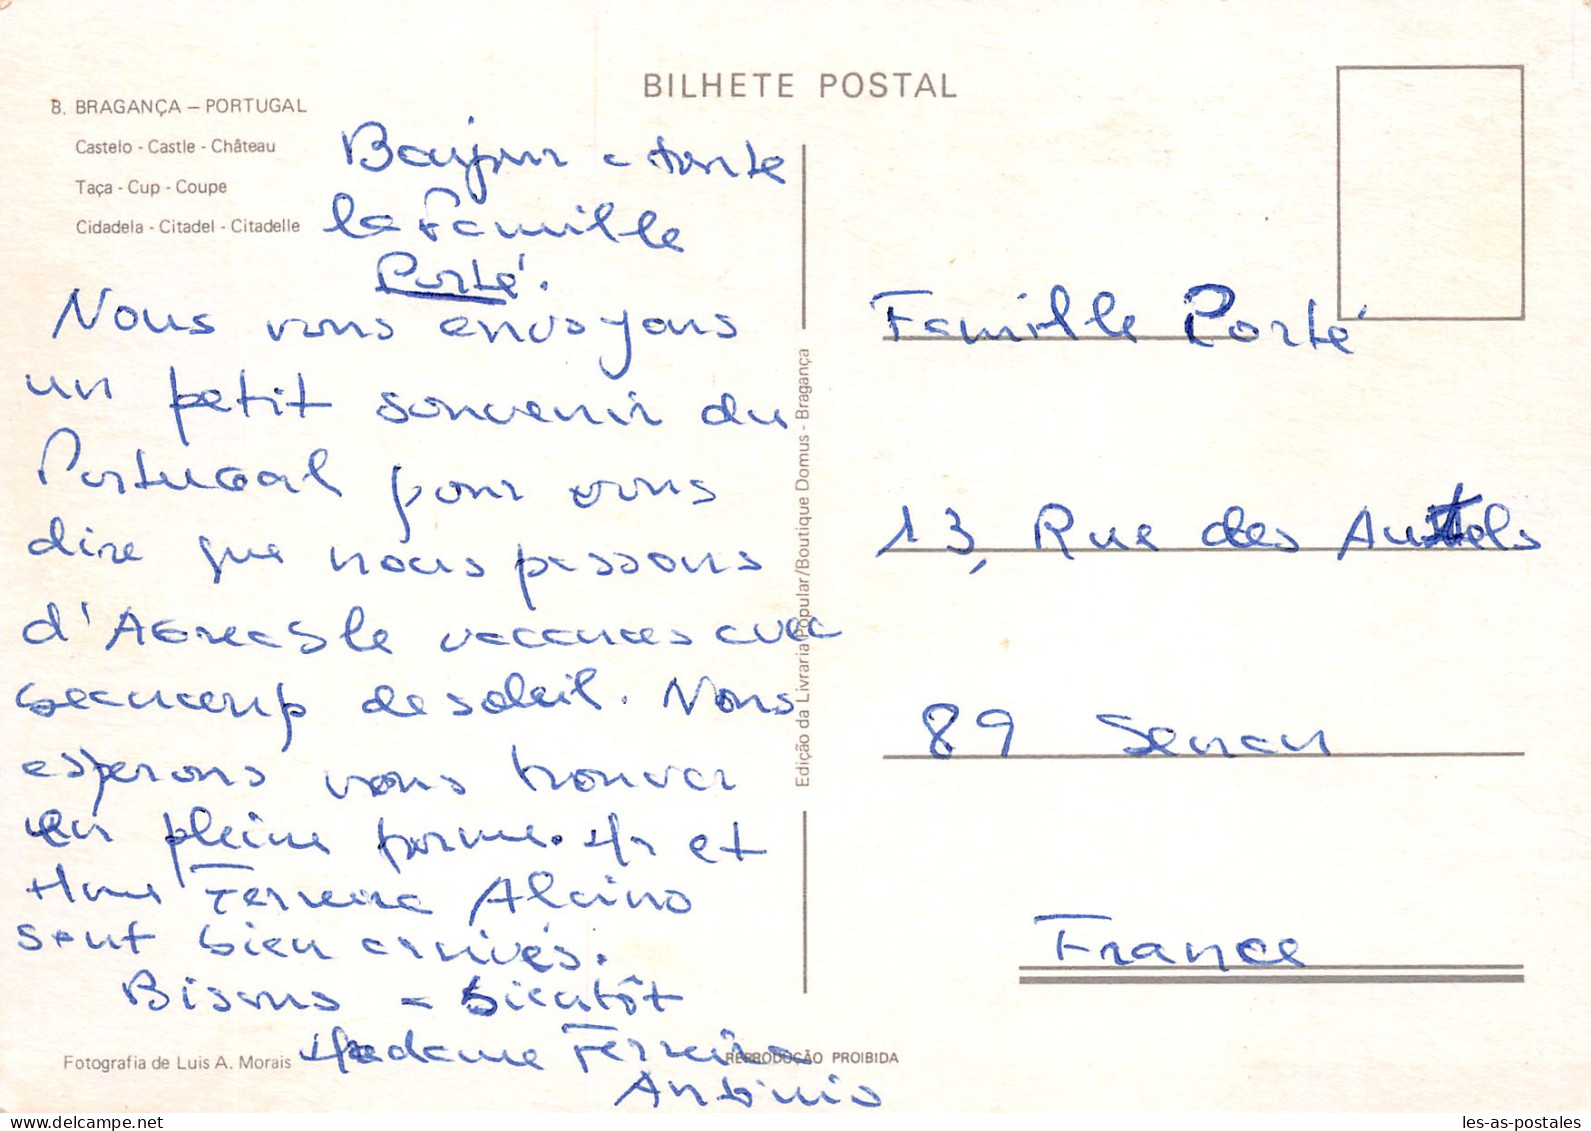 BILHETE POSTAL
8. BRAGANÇA – PORTUGAL
Castelo - Castle - Château
Taça - Cup - Coupe
Cidadela - Citadel - Citadelle
Bonjour a toute
la famille
Porté.
Nous vous envoyons
un petit souvenir du
Portugal pour vous
dire que nous passons
d'Agreable vacances avec
beaucoup de soleil. Nous
esperons vous trouver
en pleine forme. Mr et
Mme Ferreira Alcino
sont bien arrivés.
Bisous a bientôt
Madame Ferreira
Antonio
Famille Porté
13, Rue des Autels
89 Senan
France
Edição da Livraria Popular/Boutique Domus - Bragança
Fotografia de Luis A. Morais
REPRODUÇÃO PROIBIDA
les-as-postales